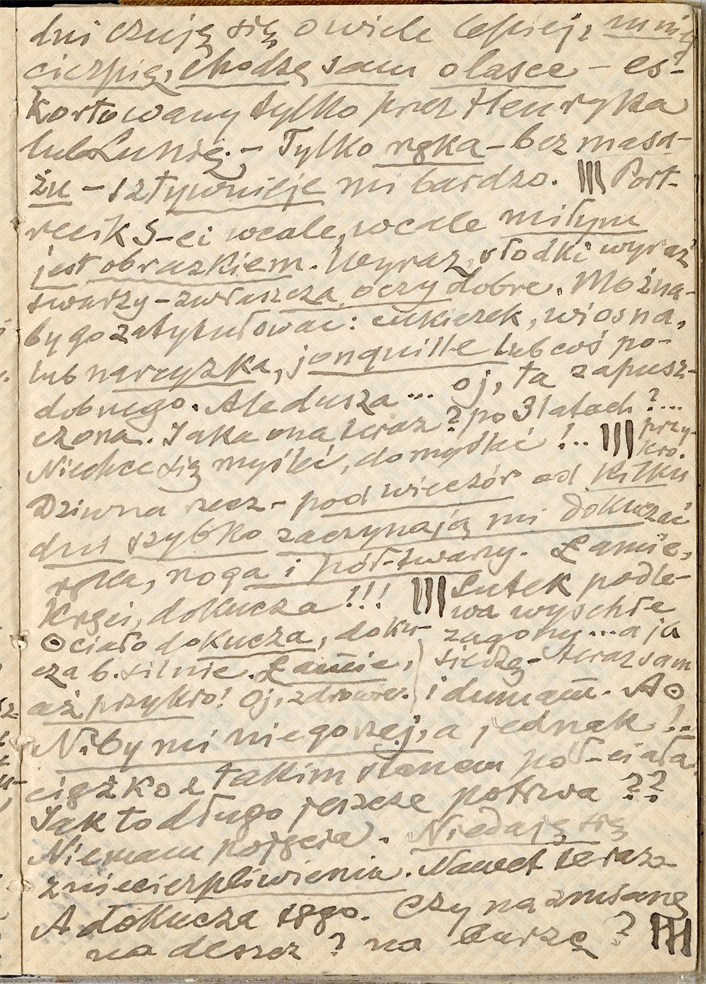 dni czują się o wiele lepiej, mniej
cierpię, chodzę sam o lasce – es-
kortowany tylko przez Henryka
lub Lunię. – Tylko ręka – bez masa-
żu – sztywnieje mi bardzo. ||| Port-
recik S-ci wcale, wcale miłym
jest obrazkiem. Wyraz, słodki wyraz
twarzy – zwłaszcza oczy dobre. Można-
by go zatytułować: cukierek, wiosna,
lub narcyzka, jonquille lub coś po-
dobnego. Ale dusza... oj, ta zapusz-
czona. Jaka ona teraz? po 3 latach?...
Nie chce się myśleć, domyśleć!.. ||| przy-
kro.
Dziwna rzecz – pod wieczór od kilku
dni szybko zaczynają mi dokuczać
ręka, noga i pół-twarzy. Łamie,
kręci, dokucza!!! ||| Lutek podle-
wa wyschłe
zagony... a ja
siedzę – teraz sam
i dumam. A⊙
⊙ciało dokucza, doku-
cza b. silnie. Łamie,
aż przykro! Oj, zdrowie.
Niby mi nie gorzej, a jednak!..
ciężko z takim stanem pół-ciała.
Jak to długo jeszcze potrwa??
Niemam pojęcia. Niedaję się
zniecierpliwieniu. Nawet teraz.
A dokucza tęgo. Czy na zmianę
na deszcz? na burzę? |||